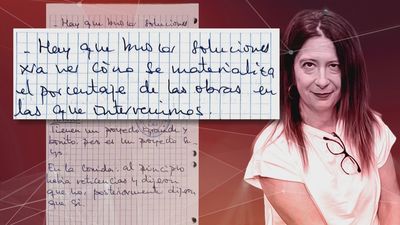 - Hay que buscar soluciones
- Hay que buscar soluciones
xra ver cómo se materializa
el porcentaje de las obras en
las que intervenimos.
Tienen un proyecto grande y
bonito pero es un proyecto
En la comida al principio
había reticencias y dijeron
que no, posteriormente dijeron
que sí.